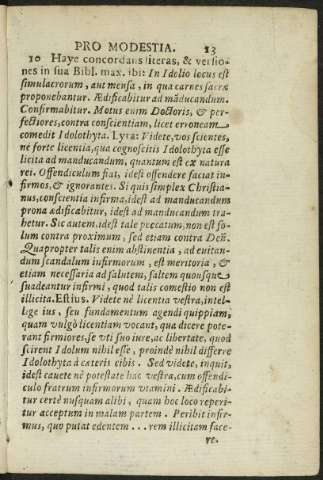 PRO MODESTIA. 13
10 Haye concordans literas, & versio-
nes in sua Bibl. max. ibi: In Idolio locus est
simulacrorum, aut mensa, in qua carnes sacræ
proponebantur. Ædificabitur ad mãducandum.
Confirmabitur. Motus enim Doctoris, & per-
fectiores, contra conscientiam, licet erroneam
comedit Idolothyta. Lyra: Videte, vos scientes,
ne forte licentia, qua cognoscitis Idolothyta esse
licita ad manducandum, quantum est ex natura
rei. Offendiculum fiat, idest offendere faciat in-
firmos, & ignorantes. Si quis simplex Christia-
nus, conscientia infirma, idest ad manducandum
prona ædificabitur, idest ad manducandum tra-
hetur. Sic autem, idest tale peccatum, non est so-
lum contra proximum, sed etiam contra Deũ.
Quapropter talis enim abstinentia, ad euitan-
dum scandalum infirmorum, est meritoria, &
etiam necessaria ad salutem, saltem quousque
suadeantur infirmi, quod talis comestio non est
illicita. Estius. Videte nè licentia vestra, intel-
lige ius, seu fundamentum agendi quippiam,
quam vulgò licentiam vocant, qua dicere pote-
rant firmiores se vti suo iure, ac libertate, quod
scirent Idolum nihil esse, proindè nihil differre
Idolothyta à cæteris cibis. Sed videte, inquit,
idest cauete nè potestate hac vestra, cum offendi-
culo fratrum infirmorum vtamini. Ædificabi-
tur certè nusquam alibi, quam hoc loco reperi-
tur acceptum in malam partem. Peribit infir-
mus, quo putat edentem ... rem illicitam face-
re.